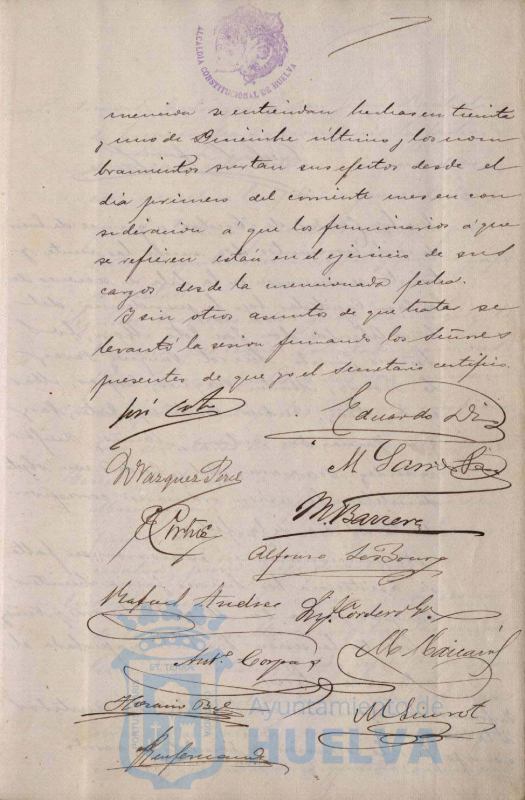 ALCALDIA CONSTITUCIONAL DE HUELVA
mencida se entiendan hechas en treinta
y uno de Diciembre último, y los nom
bramientos surtan sus efectos desde el
dia primero del corriente mes en con
sideracion á que los funcionarios á que
se refieren están en el ejercicio de sus
cargos desde la mencionada fecha.
Y sin otros asuntos de que tratar se
levantó la sesion firmando los Señores
presentes de que yo el Secretario certifico.
José
Eduardo Diz
Vazquez Perez
M
M. Barrera
Alfonso Le Bourg
Rafael Andres
Cordero
Ant.º Corpas
M. Mascarós
Horacio Bel
M. Siurot
Ayuntamiento de
HUELVA